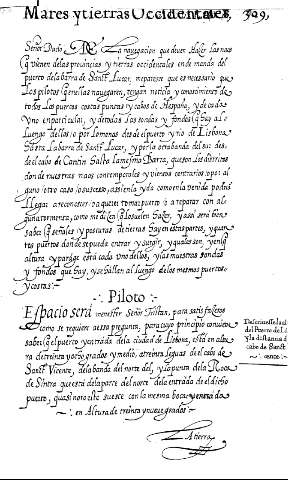 Mares y tierras Occidentales, 309,
Señor Dudo. En la navegacion que deven hazer las naos
q̃ vienen de las provincias y tierras occidentales en demanda del
puerto de la barra de Sanct Lucar, me parece que es necesario que
los pilotos q̃ en ellas navegaren, tengan noticia y conosimiento de
todos los puertos costas puntas y cabos de España, y de cada
uno en particular, y de todas las sondas y fondos q̃ ay a lo
luengo dellos: o por lo menos desde el puerto y rio de Lisbona
sobre la barra de Sanct Lucar, y por la otra banda del sur des
de el cabo de Cantin hasta la mesma Barra, que son los districtos
donde nuestras naos
algun otro caso, o sucesso, assi en la yda como en la venida podrã
llegar a reconoscer:
alguna tormenta, como
saber q̃ señales y posturas de tierras hay en estas partes, y quan
tos puertos donde se pueda entrar y surgir, y quales son, y en q̃
altura y paraje esta cada uno dellos, y las muestras sondas
y fondos que hay, y se hallen al luengo de los mesmos puertos
y costas.
Piloto.
Espacio será menester Señor Tristan, para satisfazeros
como se requiere a essa pregunta, para cuyo principio conviene
saber q̃ el puerto y entrada de la ciudad de Lisbona, está en altu
ra de treinta y ocho grados y medio, a treinta leguas de el cabo de
Sanct Vicente, de la banda del norte del, y la punta de la Roca
de Sintra que está de la parte del norte de la entrada de el dicho
puerto, quasi norte sueste con la mesma boca y entrada
en Altura de treinta y nueve grados.
La tierra
Descrĩcion
del Puerto de Li
y la distancia d
cabo de Sanct
cente